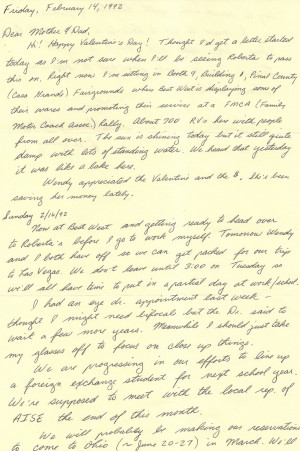 Friday, February 14, 1992
Dear Mother & Dad,
Hi! Happy Valentine's Day! Thought I'd get a letter started
today as I'm not sure when I'll be seeing Roberta to pass
this on. Right now I'm sitting in Booth 9, Building 1, Pinal County
(Casa Grande) Fairgrounds where Best West is displaying some of
their wares and promoting their services at a FMCA (Family
Motor Coach Assoc.) Rally. About 700 RVs here with people
from all over. The sun is shining today but it still quite
damp with lots of standing water. We heard that yesterday
it was like a lake here.
Wendy appreciated the Valentine and the $. She's been
saving her money lately.
Sunday 2/16/92
Now at Best West and getting ready to head over
to Roberta's before I go to work myself. Tomorrow Wendy
and I both have off so we can get packed for our trip
to Las Vegas. We don't leave until 3:00 on Tuesday so
we'll all have time to put in a partial day at work/school.
I had an eye dr. appointment last week -
thought I might need bifocals but the Dr. said to
wait a few more years. Meanwhile I should just take
my glasses off to focus on close up things.
We are progressing in our efforts to line up
a foreign exchange student for next school year.
We're supposed to meet with the local rep. of
AISE the end of this month.
We will probably be making our reservations
to come to Ohio (~ June 20-27) in March. We'll